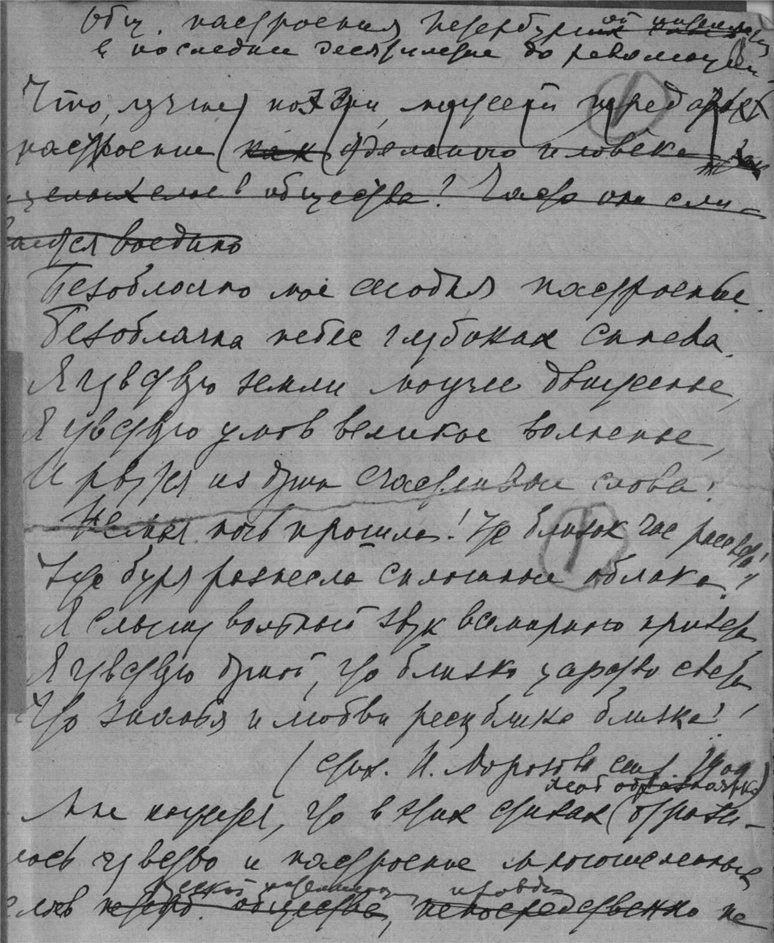 Общ. настроения Петербургской интеллиг
в последнее десятилетие до революции.
Что, лучше поэзии, может передать
настроение (как отдельного человека, так
и целых слоев общества? Часто они сли-
ваются воедино
Безоблачно мое сегодня настроенье.
Безоблачна небес глубокая синева.
Я чувствую земли могучее движенье,
Я чувствую умов великое волненье,
И рвутся из души счастливые слова!
Немая ночь прошла! Уж близок час рассвета!
Уже буря разнесла сплошные облака!
Я слышу вольный звук всемирного привета,
Я чувствую душой, что близко царство света,
Что знанья и любви республика близка!
(стих. Н. Морозова
Мне кажется, что в этих стихах (отрази-
лось чувство и настроение многочисленных
слоев петерб. общества, непосредственно не